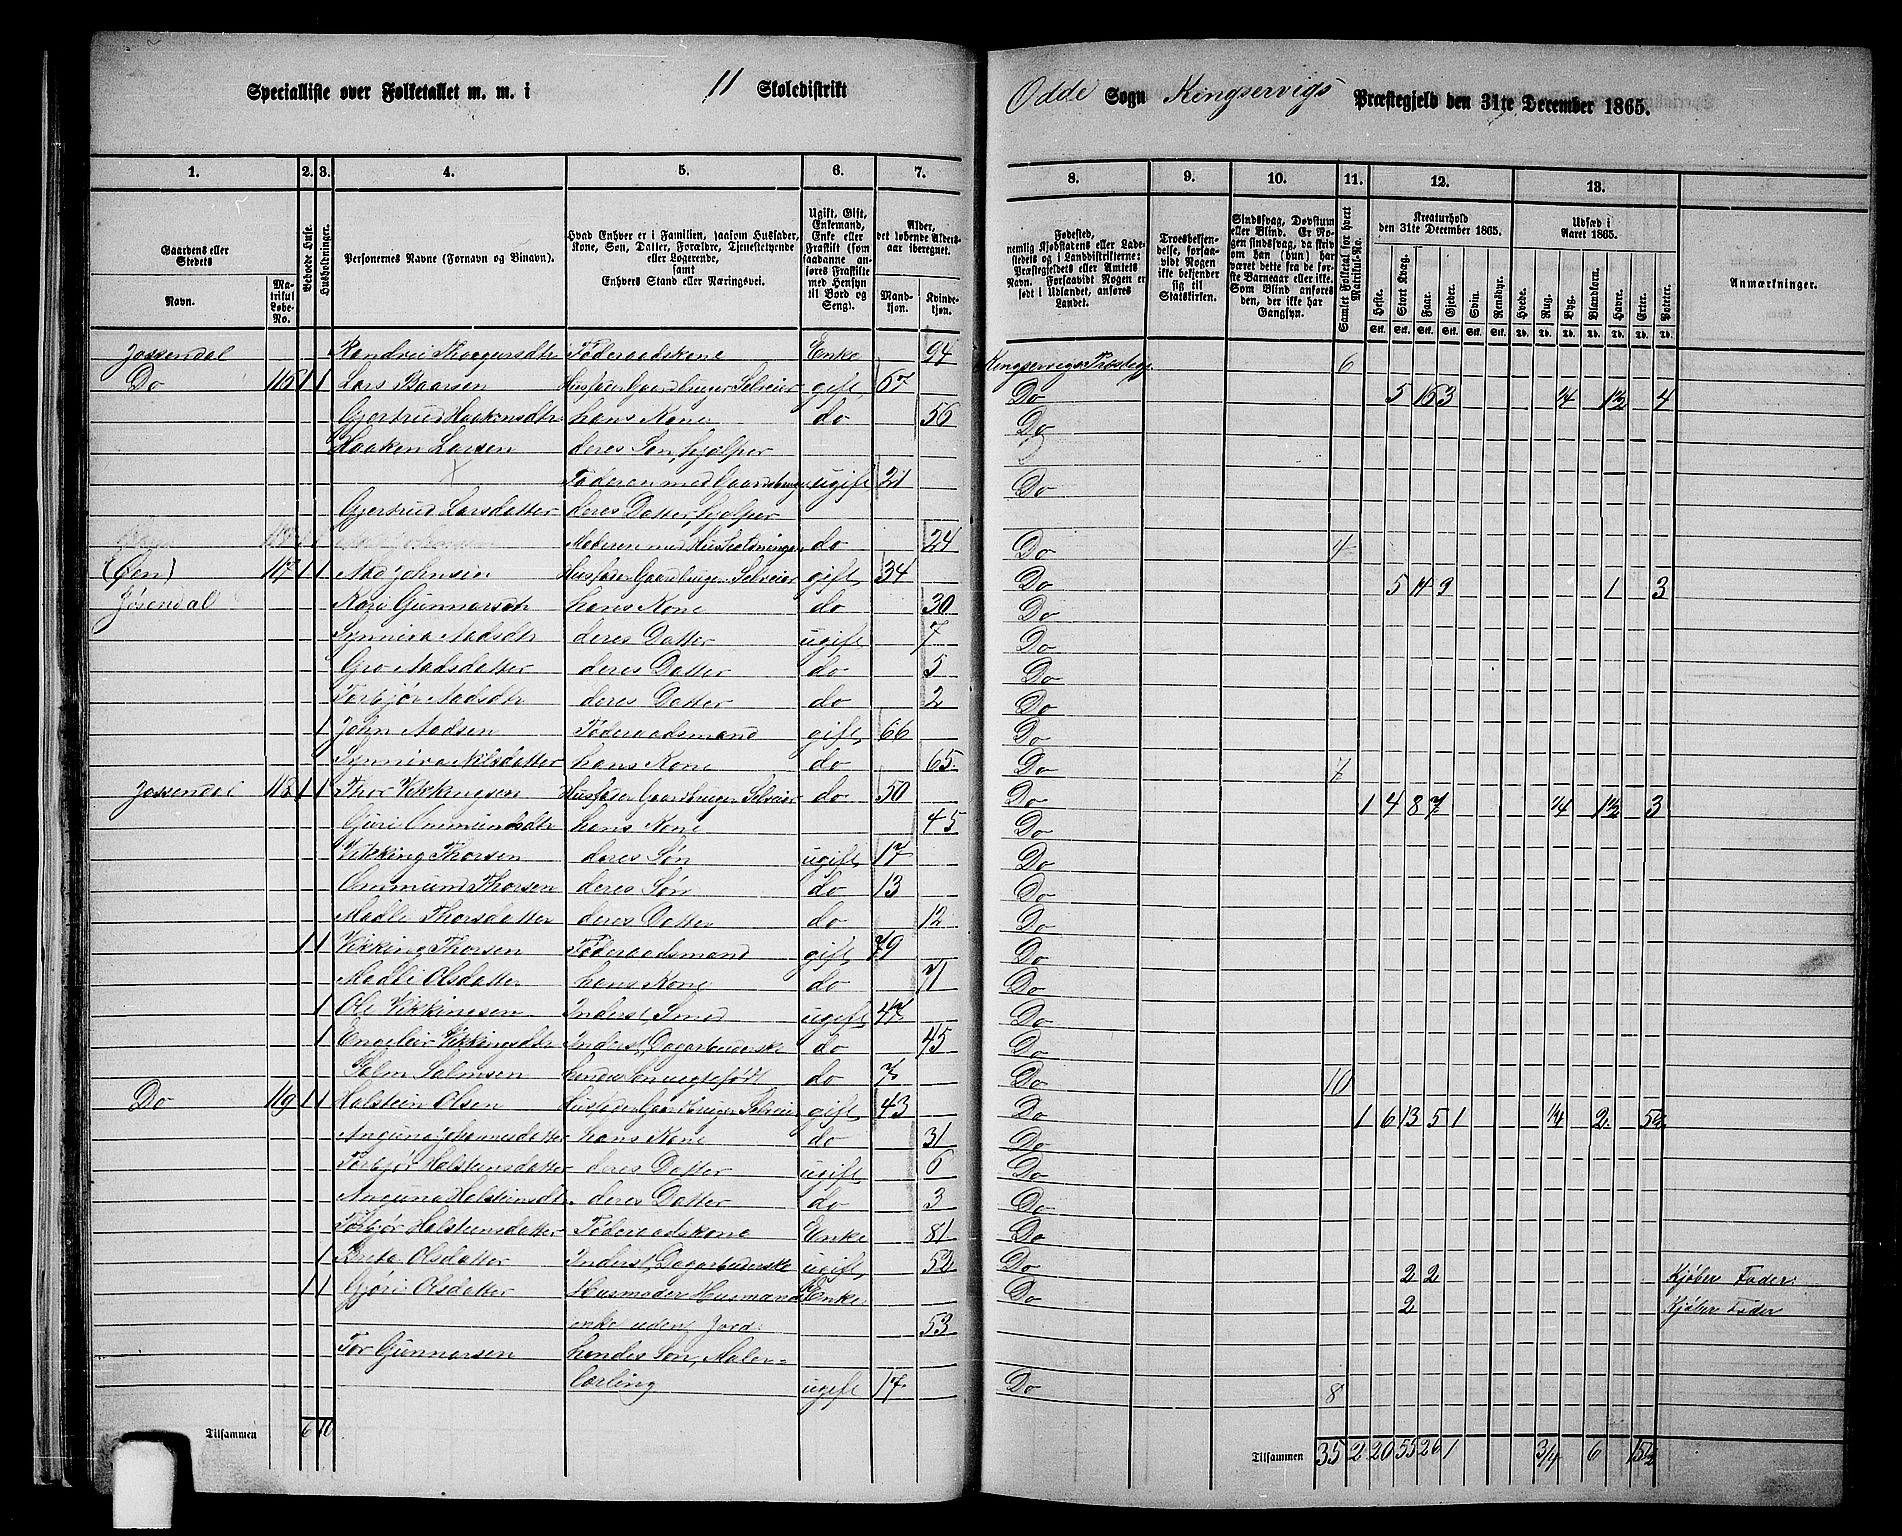 Specialliste over Folketallet m. m. i 11 Skoledistrikt
Odde Sogn Kingservigs Præstegjeld den 31te December 1865.
1. 2. 3. 4. 5. 6. 7.
8. 9. 10. 11. 12. 13.
Gaardens eller Stedets
Navn.
Matrikul Løbe-No.
Beboede Huse.
Husholdninger.
Personernes Navne (Fornavn og Binavn).
Hvad Enhver er i Familien, saasom Husfader, Kone, Søn, Datter, Forældre, Tjenestetyende eller Logerende, samt Enhvers Stand eller Næringsvei.
Ugift, Gift, Enkemand, Enke eller Fraskilt (som saadanne anføres Fraskilte med Hensyn til Bord og Seng).
Alder, det løbende Aldersaar iberegnet.
Mandkjøn. Kvindekjøn.
Fødested, nemlig Kjøbstadens eller Ladestedets og i Landdistrikterne: Præstegjeldets eller Amtets Navn. Forsaavidt Nogen er født i Udlandet, anføres Landet.
Troesbekjendelse, forsaavidt Nogen ikke bekjender sig til Statskirken.
Sindssvag, Døvstum eller Blind. Er Nogen sindssvag, da skriv om han (hun) har været dette fra de første Barneaar eller ikke. Som Blind anføres den, der ikke har Gangsyn.
Samlet Folketal for hvert Matrikul-No.
Kreaturhold den 31te December 1865.
Heste. Stort Kvæg. Faar. Gjeder. Svin. Rensdyr.
Udsæd i Aaret 1865.
Hvede. Rug. Byg. Blandkorn. Havre. Erter. Poteter.
Anmærkninger.
Jossendal Randvei Thorgersdtr Føderaadskone Enke 94 Kingservigs Præstegj. 6
Do 115 1 1 Lars Baarsen Husfader Gaardbruger Selveier gift 67 Do 5 16 3 1/4 1 1/2 4
Gjertrud Haakensdtr hans Kone do 56 Do
Haaken Larsen deres Søn, hjælper
Faderen med Gaardsbruget ugift 21 Do
Gjertrud Larsdatter deres Datter, hjelper
Moderen med Husholdningen do 24 Do 4
(Øen) 117 1 1 Aad Johnsen Husfader Gaardbruger Selveier gift 34 Do 5 11 9 1 3
Jøsendal Kari Gunnarsdtr hans Kone do 30 Do
Synneva Aadsdtr deres Datter ugift 7 Do
Gro Aadsdatter deres Datter do 5 Do
Torbjør Aadsdtr deres Datter do 2 Do
1 John Aadsen Føderaadsmand gift 66 Do
Synneva Nilsdatter hans Kone do 65 Do 7
Jossendal 118 1 1 Thor Vikkingsen Husfader Gaardbruger Selveier do 50 Do 1 4 8 7 1/4 1 1/2 3
Guri Ommundsdtr hans Kone 45 Do
Vikking Thorsen deres Søn ugift 17 Do
Ommund Thorsen deres Søn do 13 Do
Madli Thorsdatter deres Datter do 12 Do
1 1 Vikking Thorsen Føderaadsmand gift 79 Do
Madli Olsdatter hans Kone do 71 Do
1 Ole Vikkingsen Inderst, Smed ugift 47 Do
1 Engeleiv Vikkingsdtr Inderst, Dagarbeiderske do 45 Do
Salm Salmsen hendes Søn uegtefødt do 7 Do 10
Do 119 1 1 Halstein Olsen Husfader Gaardbruger Selveier gift 43 Do 1 6 13 5 1 1/4 2 5 1/2
Anguna Johannesdatter hans Kone do 31 Do
Torbjør Halsteinsdatter deres Datter ugift 6 Do
Anguna Halsteinsdtr deres Datter do 3 Do
Torbjør Halsteinsdatter Føderaadskone Enke 81 Do
1 Brita Olsdatter Inderst, Dagarbeiderske ugift 52 Do 2 2 Kjøber Foder
1 1 Gjøri Olsdatter Husmoder Husmands Enke Do 2 Kjøber Foder
enke uden Jord 53
Tor Gunnarsen hendes Søn, Maler-
lærling ugift 17 Do 8
Tilsammen 6 10
Tilsammen 35 2 20 55 26 1 3/4 6 15 1/2